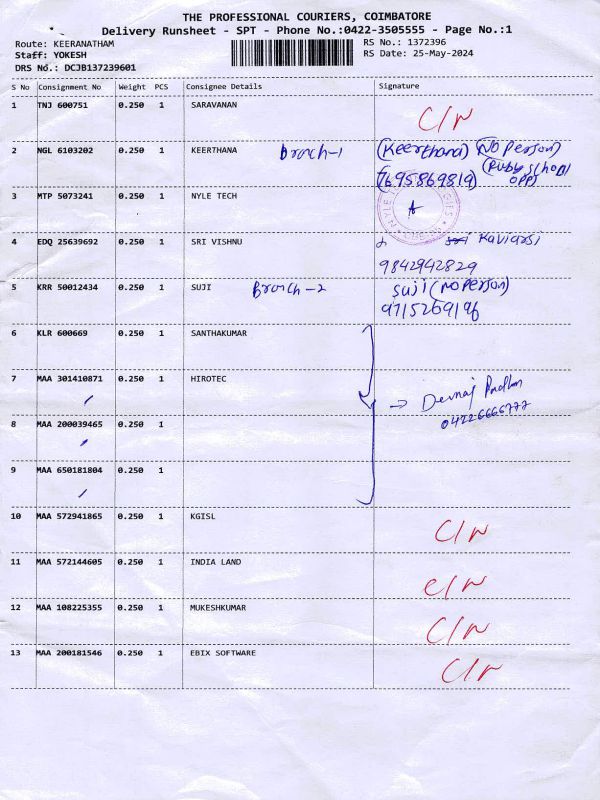 THE PROFESSIONAL COURIERS, COIMBATORE
Delivery Runsheet - SPT - Phone No.:0422-3505555 - Page No.:1
Route: KEERANATHAM RS No.: 1372396
Staff: YOKESH RS Date: 25-May-2024
DRS No.: DCJB137239601
S No Consignment No Weight PCS Consignee Details Signature
1 TNJ 600751 0.250 1 SARAVANAN C/N
2 NGL 6103202 0.250 1 KEERTHANA Branch-1 (Keerthana) (No Person)
7695869819) (Ruby school opp)
3 MTP 5073241 0.250 1 NYLE TECH
4 EDQ 25639692 0.250 1 SRI VISHNU Kaviarsi
9842942829
5 KRR 50012434 0.250 1 SUJI Branch-2 Suji (No Person)
9715269196
6 KLR 600669 0.250 1 SANTHAKUMAR
7 MAA 301410871 0.250 1 HIROTEC
04226666777
8 MAA 200039465 0.250 1
9 MAA 650181804 0.250 1
10 MAA 572941865 0.250 1 KGISL C/N
11 MAA 572144605 0.250 1 INDIA LAND C/N
12 MAA 108225355 0.250 1 MUKESHKUMAR C/N
13 MAA 200181546 0.250 1 EBIX SOFTWARE C/N